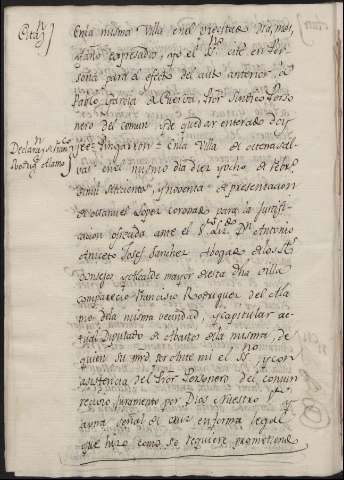 Citaⁿ]
En la misma Villa en el precitado dia, mes,
y año expresados, yo el Sⁿᵒ cité en Per-
sona para el efecto del auto anterior, a
Pablo Garcia de Cuerva, Prōr Sindico Perso
nero del comun, de quedar enterado doy
feè = Pingarron =
Declaraⁿ de Franᶜᵒ
Rodrigᶻ Alamo]
En la Villa de
en el mismo dia diez y ocho de Febrº
de mil setecientos, y noventa de presentacion
de Manuel Lopez Coronas para la justifi-
cacion ofrecida ante el Sʳ Liz. Dⁿ Antonio
Aniceto Josef Sanchez Abogado de los Rˢ
Consejos y Alcalde mayor de esta dha villa
comparecio Francisco Rodriguez del Ala
mo de la misma vecindad, y capitular ac-
tual Diputado de Abastos de la misma, de
quien su mrd por ante mi el Sⁿᵒ y con
asistencia del Prōr Personero del comun
recivio juramento por Dios Nuestro Sʳ y
a una señal de cruz en forma legal
que hizo como se requiere prometiendo